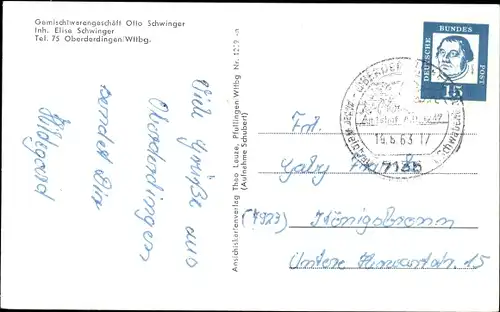 Gemischtwarengeschäft Otto Schwinger
Inh. Elise Schwinger
Tel. 75 Oberderdingen/Wttbg.
Viele Grüße aus
Oberderdingen
sendet Dir
Hildegard
Ansichtskartenverlag Theo Leuze, Pfullingen/Wttbg Nr. 1219
(Aufnahme Schubert)
DEUTSCHE
BUNDES
POST
15
19.6.63-17
7135
Frl.
Gaby
(7923) Königsbronn
Untere 15